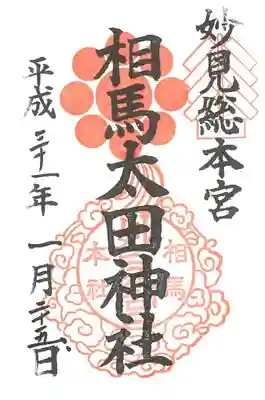 妙見総本宮
相馬太田神社
平成三十一年 一月二十五日
相馬
本社